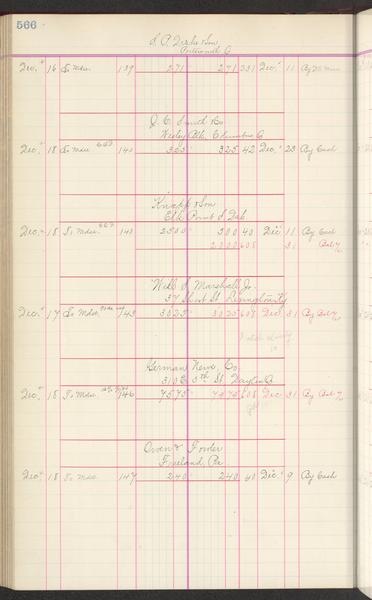 566
& Son
Portsmouth O
Dec. 16 To Mdse. 139 271 271 231 Dec. 11 By
J. C. Smith & Co
Wesley Blk. Columbus O
Dec. 18 To Mdse 140 325 325 42 Dec. 23 By Cash
Knapp & Son
Elk Point S. Dak
Dec. 18 To Mdse. 140 2500 500 40 Dec 11 By Cash
2000 608 31 " Bal
Will S. Marshall Jr.
37 Short St. Lexington Ky
Dec. 17 To Mdse. 143 3025 3025 607 Dec. 31 By Bal
German News Co
310 E 5th St. Dayton O.
Dec. 18 To Mdse. 146 7575 7575 608 Dec 31 By Bal
Owen & Fowler
Freeland, Pa
Dec. 18 To Mdse. 147 240 240 40 Dec. 9 By Cash